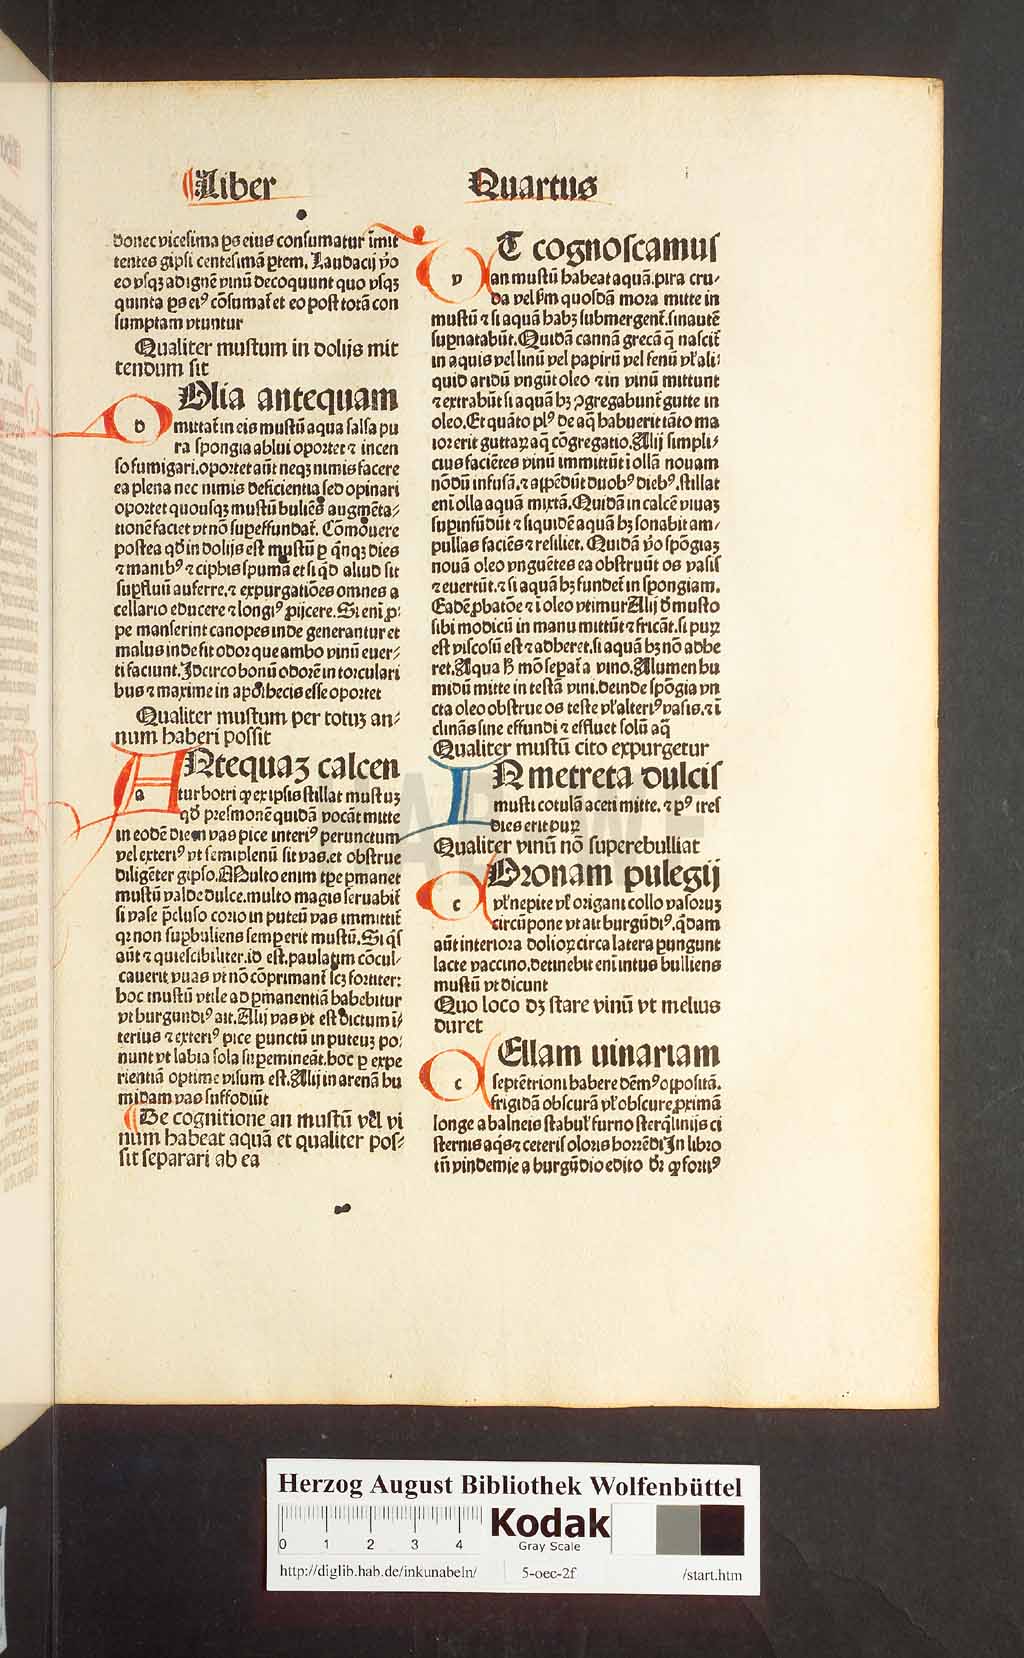 Liber Quartus
donec vicesima ꝑs eius consumatur īmit
tentes gipsi centesimā ꝑtem. Laudacij v̄o
eo vsqꝫ ad ignē vinū decoquunt quo vsqꝫ
quinta ꝑs eiꝰ cōsumat̄ et eo post totā con
sumptam vtuntur
Qualiter mustum in dolijs mit
tendum sit
DOlia antequam
mittat̄ in eis mustū aqua salsa pu
ra spongia ablui oportet ⁊ incen
so fumigari. oportet aūt neqꝫ nimis facere
ea plena nec nimis deficientia sed opinari
oportet quousqꝫ mustū buliēs augmēta⸗
tionē faciet vt nō suꝑeffundat̄. Comouere
postea qđ in dolijs est mustū ꝑ q̄nqꝫ dies
⁊ manibꝰ ⁊ ciphis spumā et si qđ aliud sit
suꝑfluū auferre. ⁊ expurgatiōes omnes a
cellario educere ⁊ longiꝰ ꝓijcere. Si eni ꝓ⸗
pe manserint canopes inde generantur et
malus inde fit odor que ambo vinū euer⸗
ti faciunt. Idcirco bonū odorē in torculari
bus ⁊ maxime in apothecis esse oportet
Qualiter mustum per totuꝫ an⸗
num haberi possit
ANtequaꝫ calcen
tur botri ꝙ ex ipsis stillat mustuꝫ
qđ presmonē quidā vocāt mitte
in eodē die in vas pice interiꝰ perunctum
vel exteriꝰ vt semiplenū sit vas. et obstrue
diligēter gipso. Multo enim tꝑe ꝑmanet
mustū valde dulce. multo magis seruabit̄
si vase p̄cluso corio in puteū vas immittit̄
qꝛ non suꝑbuliens semper erit mustū. Si q̄s
aūt ⁊ quiescibiliter. id est. paulatim cōcul⸗
cauerit vuas vt nō cōprimant̄ scꝫ fortiter:
hoc mustū vtile ad ꝑmanentiā habebitur
vt burgundiꝰ ait. Alij vas vt est dictum i⸗
terius ⁊ exteriꝰ pice ꝑunctū in puteuꝫ po⸗
nunt vt labia sola suꝑemineāt. hoc ꝑ expe
rientiā optime visum est. Alij in arenā hu
midam vas suffodiūt
De cognitione an mustū vel vi
num habeat aquā et qualiter pos⸗
sit separari ab ea
VT cognoscamus
an mustū habeat aquā. pira cru⸗
da vel s̄m quosdā mora mitte in
mustū ⁊ si aquā habꝫ submergent̄. sin autē
suꝑnatabūt. Quidā cannā grecā q̄ nascit̄
in aquis vel linū vel papirū vel fenū vł ali⸗
quid aridū vngūt oleo ⁊ in vinū mittunt
⁊ extrahūt si aquā hꝫ ꝯgregabunt̄ gutte in
oleo. Et quāto plꝰ de aq̄ habuerit tāto ma
ior erit guttaꝝ aq̄ cōgregatio. Alij simpli⸗
cius faciētes vinū immittūt ī ollā nouam
nōdū infusā. ⁊ appēdūt duobꝰ diebꝰ. stillat
enī olla aquā mixtā. Quidā in calcē viuaꝫ
suꝑinfūdūt ⁊ si quidē aquā hꝫ sonabit am⸗
pullas faciēs ⁊ resiliet. Quidā v̄o spōgiaꝫ
nouā oleo vnguētes ea obstruūt os vasis
⁊ euertūt. ⁊ si aquā hꝫ fundet̄ in spongiam.
Eadē ꝓbatōe ⁊ ī oleo vtimur Alij đ musto
sibi modicū in manu mittūt ⁊ fricāt. si puꝝ
est viscosū est ⁊ adheret. si aquā hꝫ nō adhe
ret. Aqua h̄ mō sepat̄ a vino. Alumen hu
midū mitte in testā vini. deinde spōgia vn
cta oleo obstrue os teste vł alteriꝰ vasis. ⁊ ī
clinās sine effundi ⁊ effluet solū aq̄
Qualiter mustū cito expurgetur
IN metreta dulcis
musti cotulā aceti mitte. ⁊ pꝰ tres
dies erit puꝝ
Qualiter vinū nō superebulliat
COronam pulegij
vł nepite vł origani collo vasoruꝫ
circūpone vt ait burgūdiꝰ. q̄dam
aūt interiora dolioꝝ circa latera ꝑungunt
lacte vaccino. detinebit enī intus bulliens
mustū vt dicunt
Quo loco dꝫ stare vinū vt melius
duret
CEllam uinariam
septētrioni habere dēmꝰ oppositā.
frigidā obscurā vł obscure ꝓximā
longe a balneis stabuł furno sterq̄linijs ci
sternis aq̄s ⁊ ceteris oloris horrēdi In libro
tn̄ vindemie a burgūdio edito dr̄ ꝙ fortiꝰ
Herzog August Bibliothek Wolfenbüttel
0 1 2 3 4
Kodak
Gray Scale
http://diglib.hab.de/inkunabeln/ 5-oec-2f /start.htm